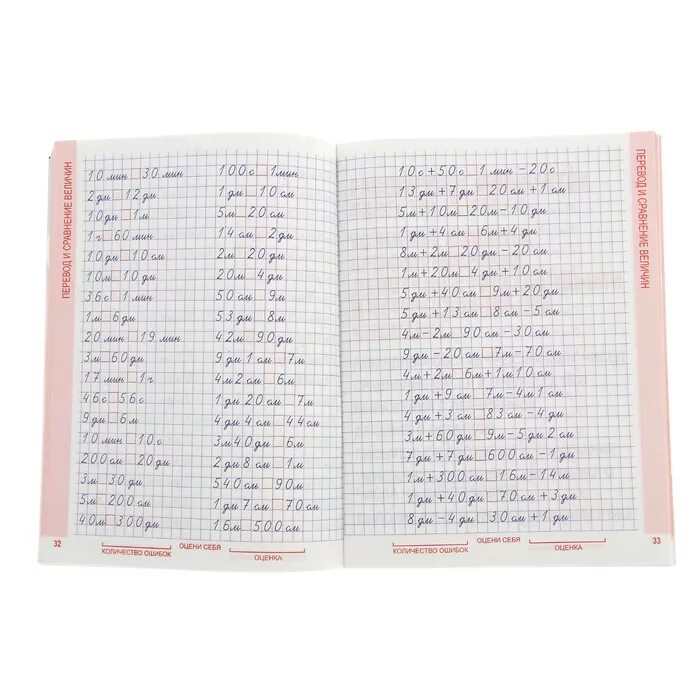 ПЕРЕВОД И СРАВНЕНИЕ ВЕЛИЧИН
10 мин □ 30 мин
2 дм □ 12 дм
10 дм □ 1 м
1 ч □ 60 мин
10 дм □ 10 см
10 м □ 10 дм
36 с □ 1 мин
1 м □ 6 дм
20 мин □ 19 мин
3 м □ 60 дм
17 мин □ 1 ч
46 с □ 56 с
9 дм □ 6 м
10 мин □ 10 с
200 см □ 20 дм
3 м □ 30 дм
5 м □ 200 см
40 м □ 300 дм
100 с □ 1 мин
1 дм □ 10 см
5 м □ 20 см
14 см □ 2 дм
2 м □ 20 дм
20 м □ 4 дм
50 см □ 9 м
53 дм □ 8 м
42 м □ 90 дм
9 дм 1 см □ 7 м
4 м 2 см □ 6 м
1 дм 20 см □ 7 м
4 дм 4 см □ 44 см
3 м 40 дм □ 6 м
2 дм 8 см □ 1 м
540 см □ 90 м
1 дм 7 см □ 70 см
16 м □ 500 см
32
КОЛИЧЕСТВО ОШИБОК
ОЦЕНИ СЕБЯ
ОЦЕНКА
ПЕРЕВОД И СРАВНЕНИЕ ВЕЛИЧИН
10 с + 50 с □ 1 мин - 20 с
13 дм + 7 дм □ 20 см + 1 см
5 м + 10 м □ 20 м - 10 дм
1 дм + 4 см □ 6 м + 4 дм
8 м + 2 м □ 20 дм - 20 см
1 м + 20 м □ 4 дм + 10 см
5 дм + 40 см □ 9 м + 20 дм
5 дм + 13 см □ 8 см - 5 см
4 м - 2 м □ 90 см - 30 см
9 дм - 20 см □ 7 м - 70 см
4 м + 2 м □ 6 м + 1 м 10 см
1 дм + 9 см □ 7 м - 4 м 1 см
4 дм + 3 см □ 83 см - 4 дм
3 м + 60 дм □ 9 м - 5 дм 2 см
7 дм + 7 дм □ 600 см - 1 дм
1 м + 300 см □ 16 м - 14 м
1 дм + 40 дм □ 70 см + 3 дм
8 дм - 4 дм □ 30 см + 1 дм
КОЛИЧЕСТВО ОШИБОК
ОЦЕНИ СЕБЯ
ОЦЕНКА
33